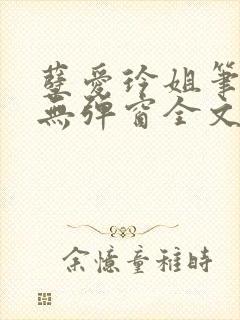 孽愛玲姐筆
無彈窗全文
余憶童稚時